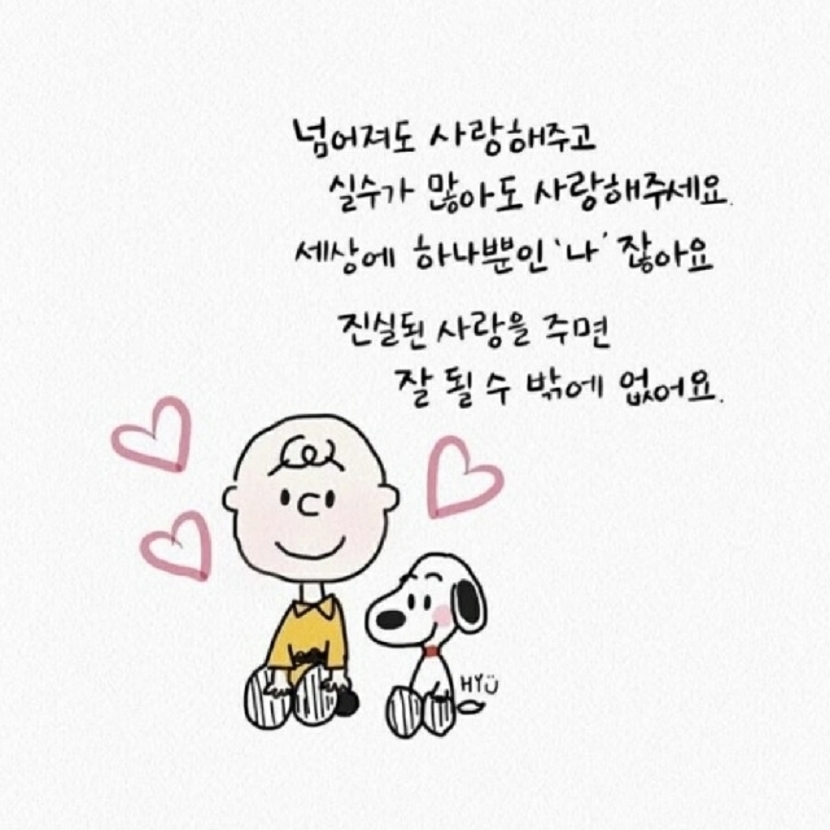 넘어져도 사랑해주고
실수가 많아도 사랑해주세요.
세상에 하나뿐인 '나' 잖아요
진실된 사랑을 주면
잘 될 수 밖에 없어요.
HYU